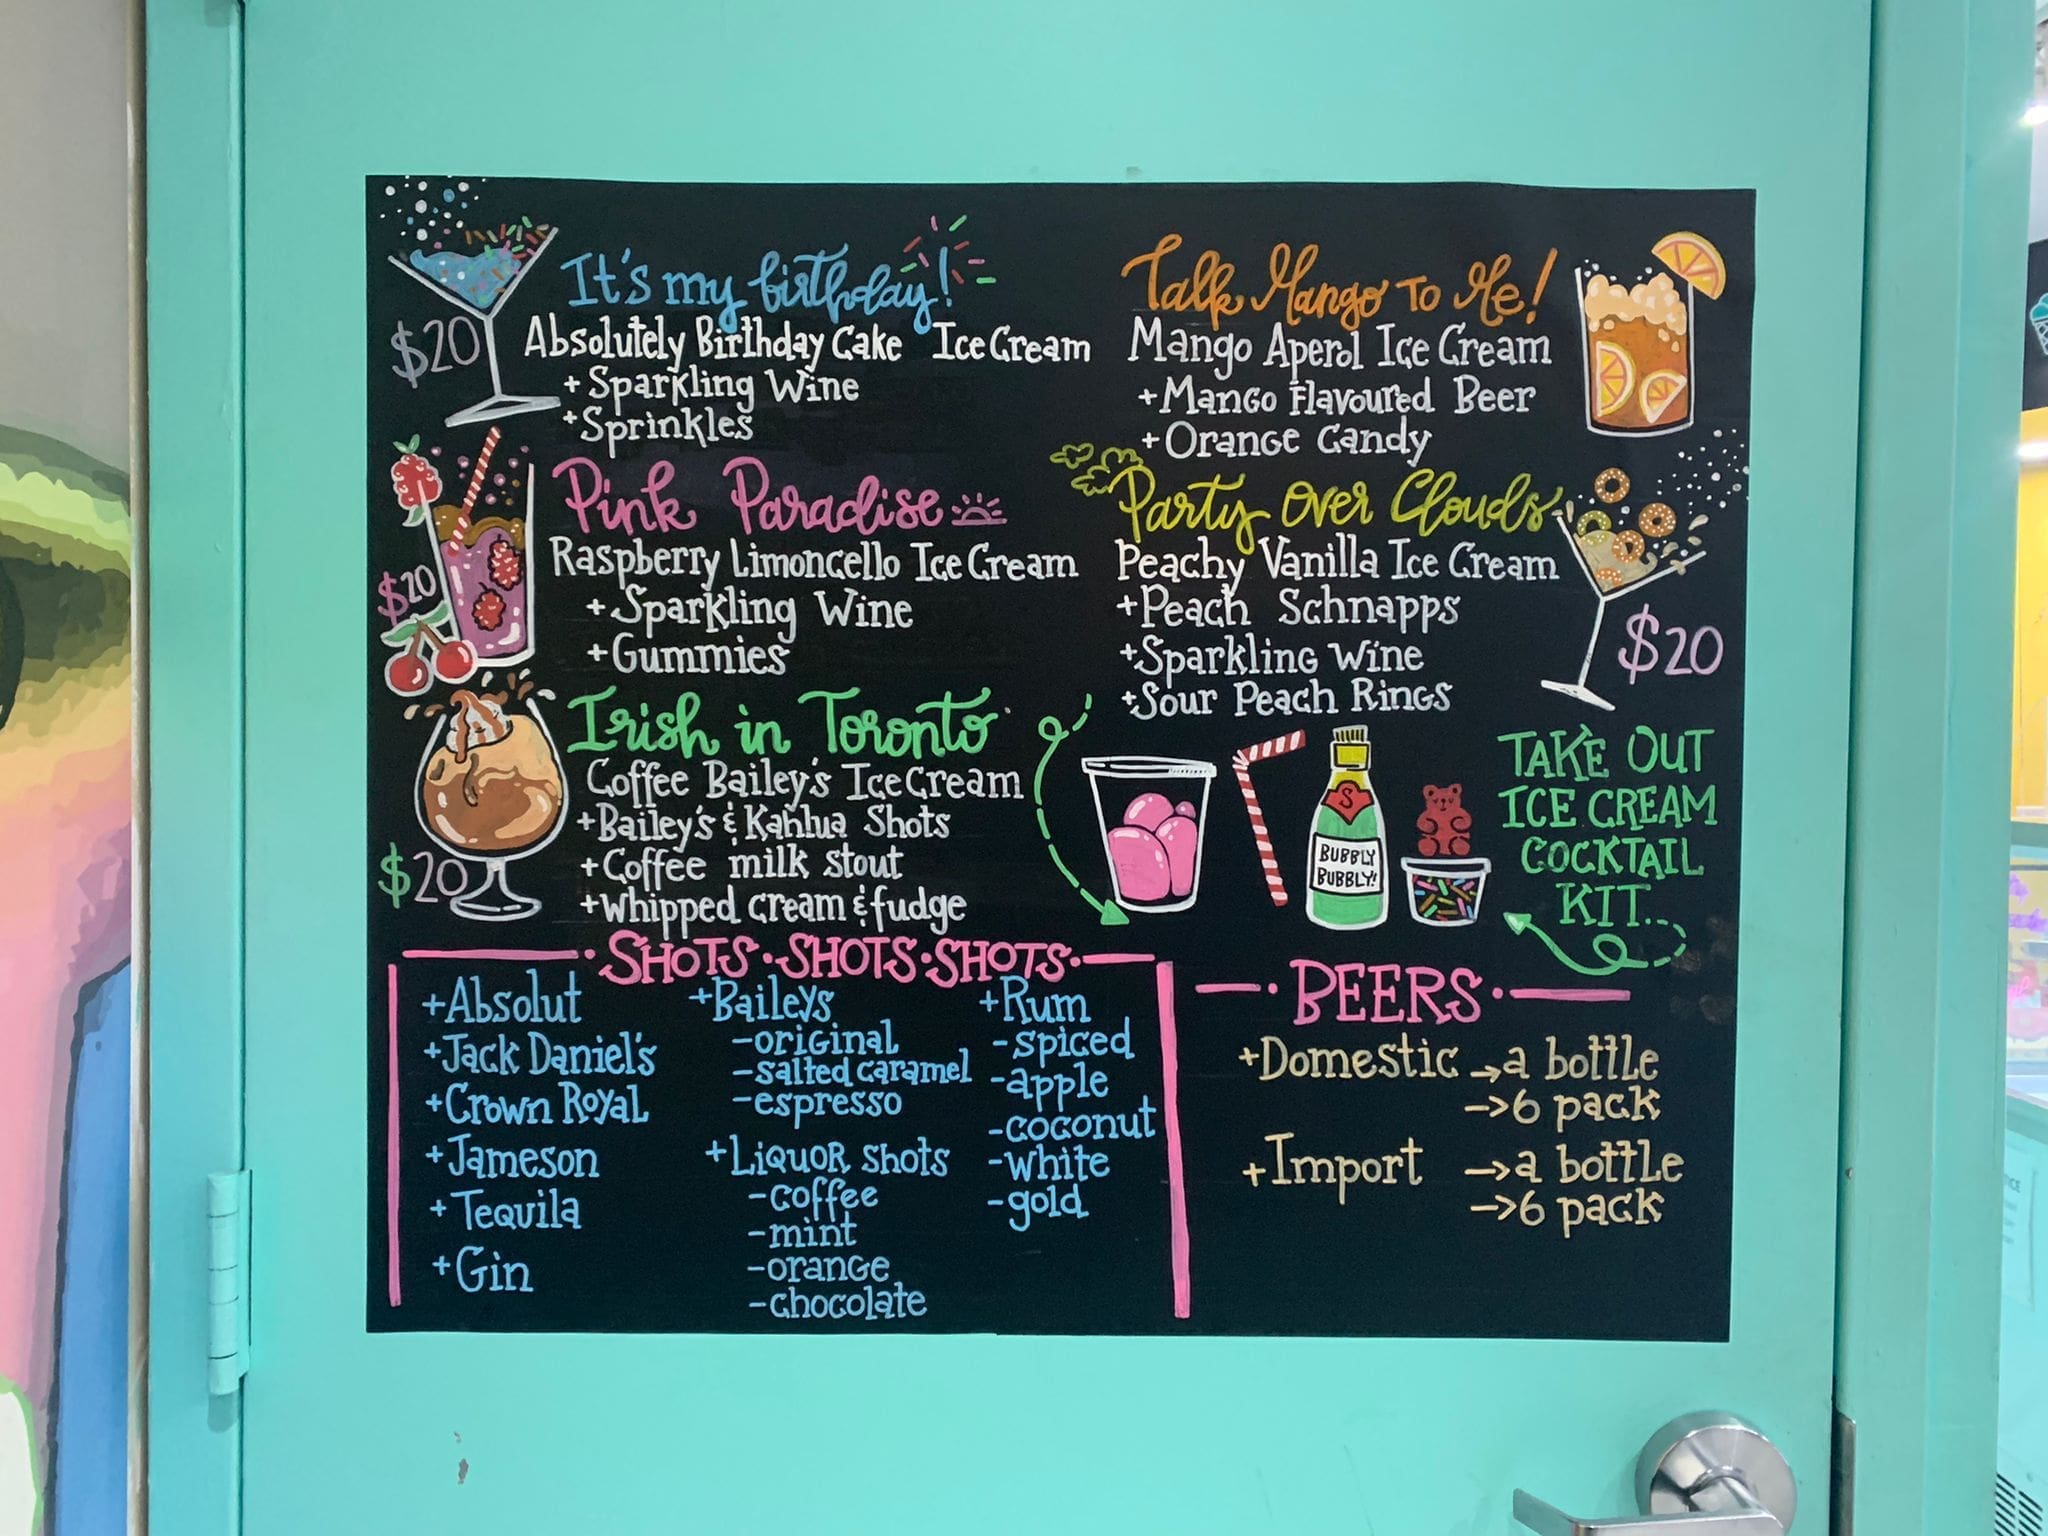 It's my birthday!
$20
Absolutely Birthday Cake Ice Cream
+ Sparkling Wine
+ Sprinkles
Pink Paradise
$20
Raspberry Limoncello Ice Cream
+ Sparkling Wine
+ Gummies
Irish in Toronto
$20
Coffee Bailey's Ice Cream
+ Bailey's & Kahlua Shots
+ Coffee milk stout
+ whipped cream & fudge
Talk Mango To Me!
Mango Aperol Ice Cream
+ Mango Flavoured Beer
+ Orange Candy
Party Over Clouds
Peachy Vanilla Ice Cream
+ Peach Schnapps
+ Sparkling Wine
+ Sour Peach Rings
$20
S
BUBBLY
BUBBLY!
TAKE OUT
ICE CREAM
COCKTAIL
KIT...
SHOTS · SHOTS · SHOTS
+ Absolut
+ Jack Daniel's
+ Crown Royal
+ Jameson
+ Tequila
+ Gin
+ Baileys
- original
- salted caramel
- espresso
+ Liquor shots
- coffee
- mint
- orange
- chocolate
+ Rum
- spiced
- apple
- coconut
- white
- gold
BEERS
+ Domestic → a bottle
→ 6 pack
+ Import → a bottle
→ 6 pack